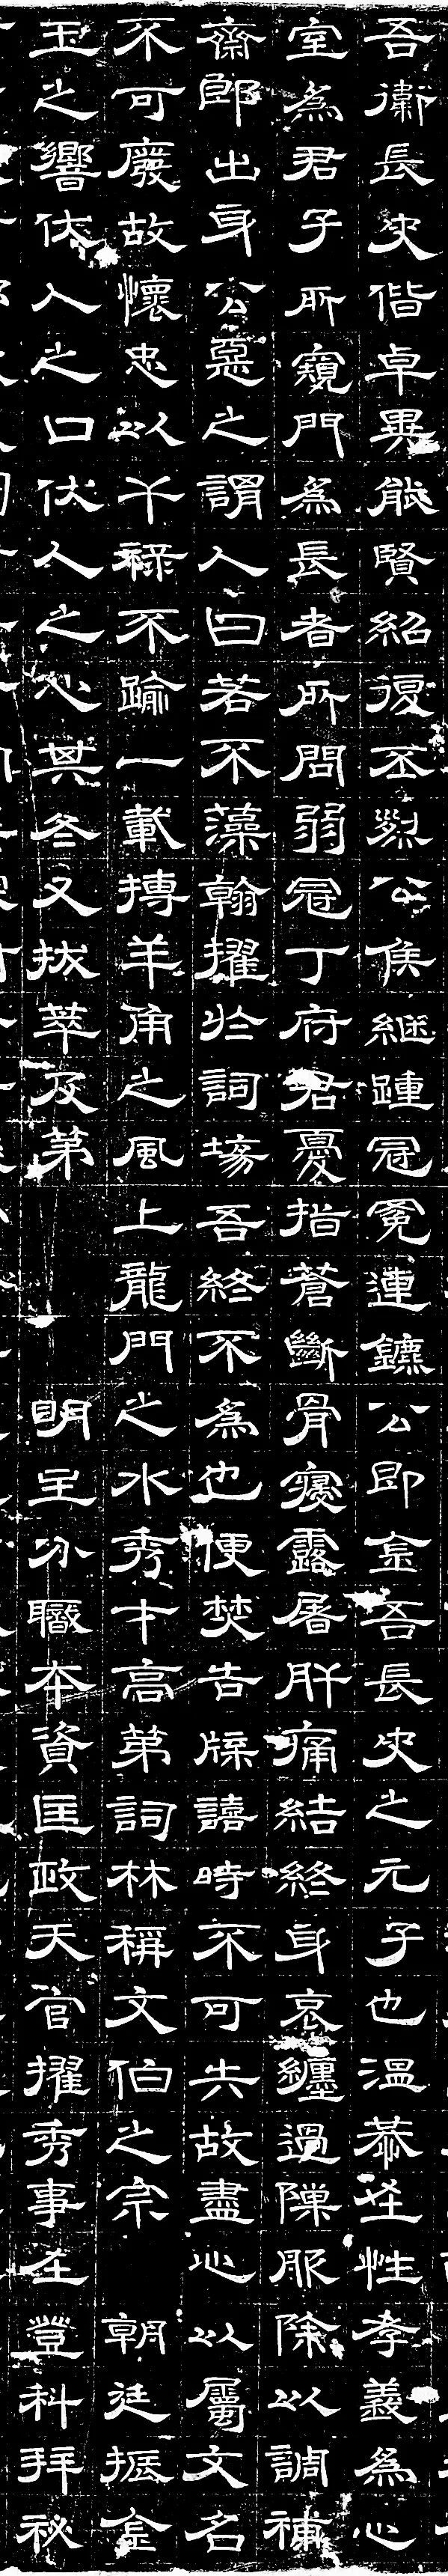 吾衛長史偕卓異能賢紹復丕烈公侯継踵冠冕連鑣公即金吾長史之元子也溫恭在性孝義為心
室為君子所窺門為長者所問弱冠丁府君憂指蒼斷骨寢露屠肝痛結終身哀纏過隟服除以調補
齋郎出身公惡之謂人曰若不藻翰擢於詞場吾終不為也便焚告牒譆時不可失故盡心以屬文名
不可廢故懷忠以干祿不踰一載摶羊角之風上龍門之水秀才高第詞林稱文伯之宗朝廷振金
玉之響伏人之口伏人之心其冬又拔萃及第明主分職本資匡政天官擢秀事在登科拜祕